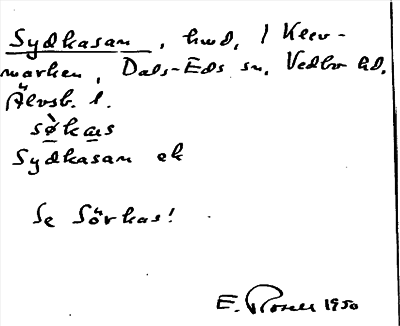 Sydkasam, hmd, i Klev-
marken, Dals-Eds sn, Vedbo hd,
Älvsb. l.
sø̀kas
Sydkasam ek
Se Sörkas!
E. Rosell 1950